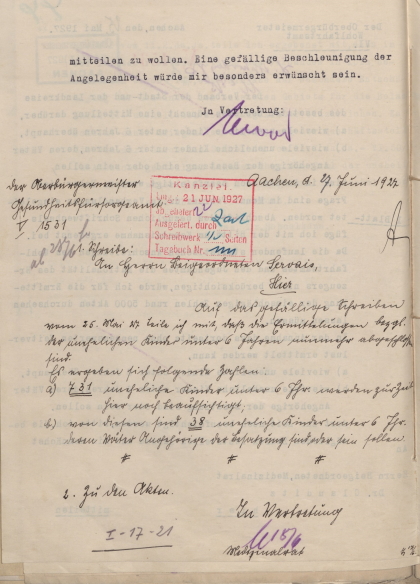 mitteilen zu wollen. Eine gefällige Beschleunigung der
Angelegenheit würde mir besonders erwünscht sein.
In Vertretung:
Der Oberbürgermeister
Gesundheitsfürsorgeamt
V 1531
Aachen, d. 27. Juni 1927
Kanzlei.
21 JUN. 1927
Ausgefert. durch
Schreibwerk ½ Seiten
Tagebuch Nr.
1. Schreibe:
An Herrn Beigeordneten Servais,
Hier
Auf das gefällige Schreiben
vom 25. Mai 27 teile ich mit, daß die Ermittelungen bezgl.
der unehelichen Kinder unter 6 Jahren nunmehr abgeschlossen
sind.
Es ergeben sich folgende Zahlen:
a) 731 uneheliche Kinder unter 6 Jhr. werden zur Zeit
hier noch beaufsichtigt,
b) von diesen sind 38 uneheliche Kinder unter 6 Jhr.
deren Väter Angehörige der Besatzung sind oder sein sollen.
2. Zu den Akten.
In Vertretung
I-17-21
Medizinalrat